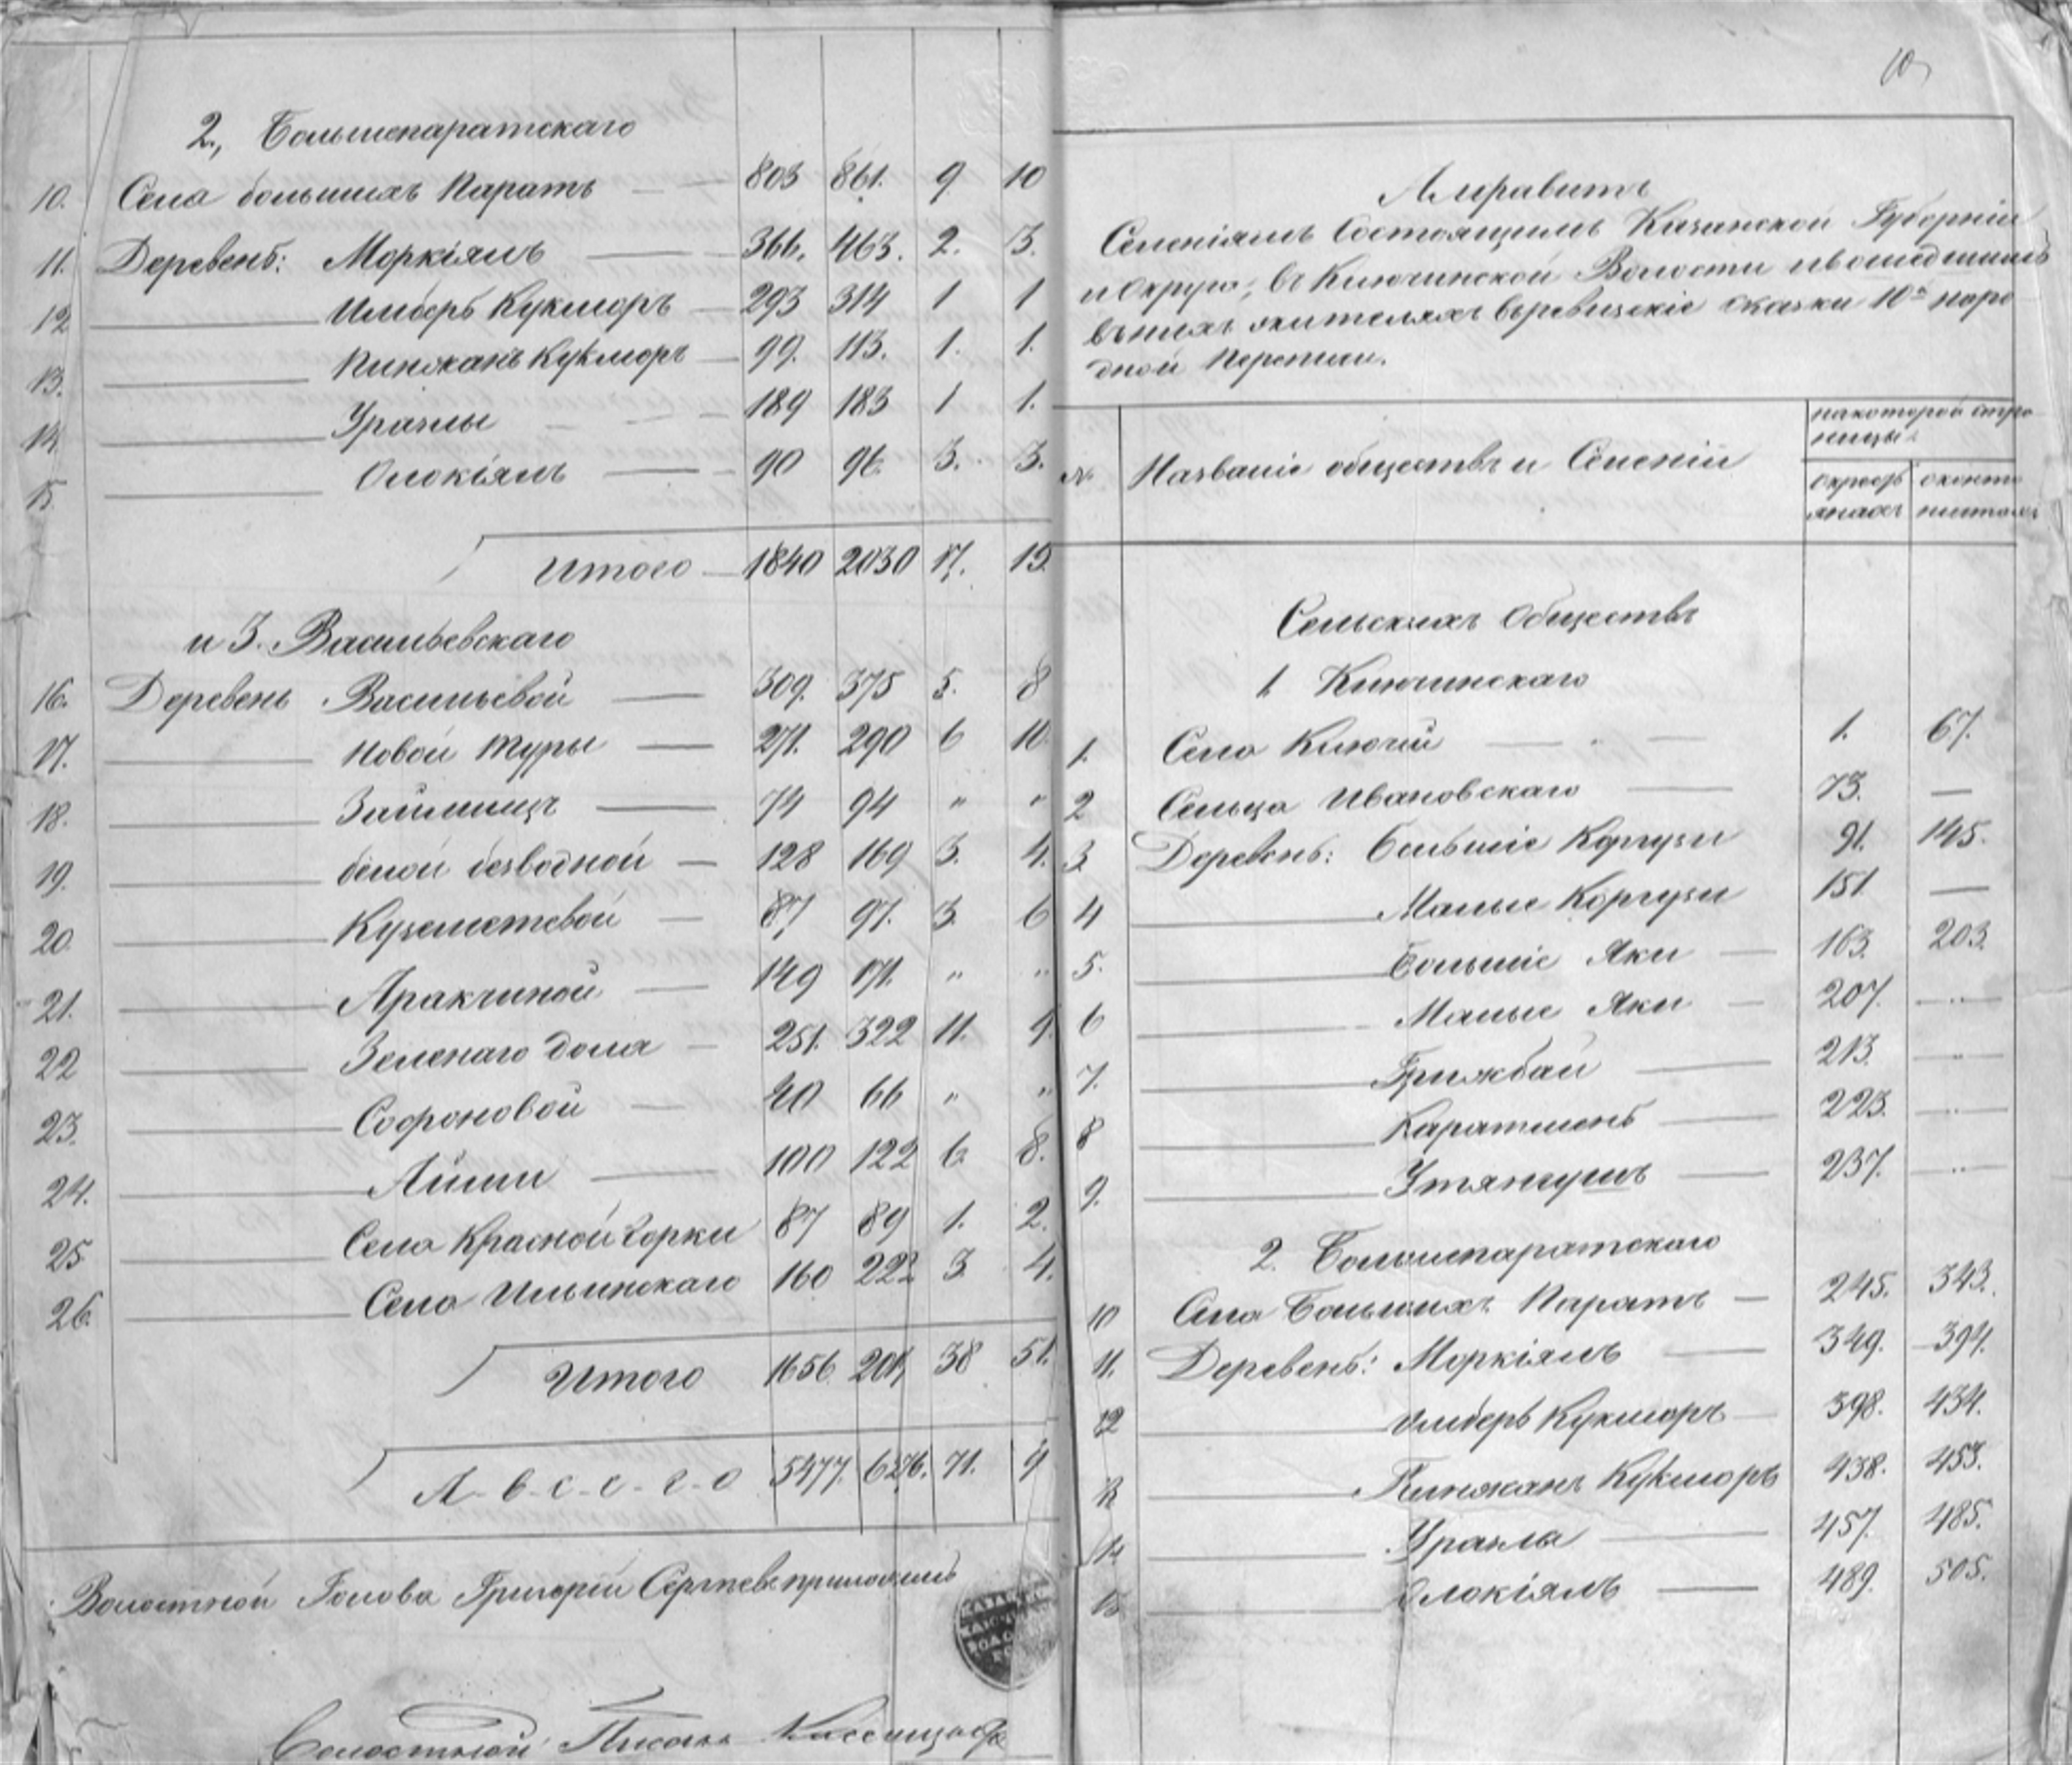 2., Большепаратскаго
10. Села большихъ Паратъ 803 861. 9 10
11. Деревень: Моркіялъ 366. 463. 2. 3.
12 Имберь Кукморъ 293 314 1 1
13. Кинжанъ Кукморъ 99. 113. 1. 1.
14. Урачлы 189 183 1 1.
15. Олокіялъ 90 96. 3. 3.
Итого 1840 2030 17. 19.
и 3. Васильевскаго
16. Деревень Васильевой 309. 375 5. 8
17. Новой Туры 271. 290 6 10.
18. Займищъ 74 94 " "
19. бѣлой безводной 128 169 3. 4.
20. Куземетевой 87 97. 3. 6
21. Аракчиной 149 171. " "
22 Зеленаго дола 251. 322 11. 9.
23. Софоновой 40 66 " "
24. Айши 100 122 6. 8.
25 Села Красной горки 87 89 1. 2.
26. Села Ильинскаго 160 222 3. 4.
Итого 1656. 2017. 38 51.
А-в-с-е-г-о 5477. 6276. 71. 9
Волостной Голова Григорій Сергѣевъ приложилъ
Волостной Писарь
10
Алфавитъ
Селеніямъ Состоящимъ Казанской Губерніи
и округа, въ Ключинской Волости и вошедшимъ
въ нихъ жителяхъ въ ревизскіе сказки 10й наро
дной Переписи.
№ Названіе обществъ и Селеній
на которой стра
ницы
о кресть
янахъ
Сельскихъ Обществъ
1. Ключинскаго
1. Село Ключи 1. 67.
2 Сельца Ивановскаго 73. —
3. Деревень: Большіе Коргузи 91. 145.
4 Малые Коргузи 151. —
5. Большіе Яки 163. 203.
6 Малые Яки 207. "
7. Гришбай 213. "
8 Каратмень 223. "
9. Утянгушъ 237. "
2. Большепаратскаго
10 Села Большихъ Паратъ 245. 343.
11. Деревень: Моркіялъ 349. 394.
12 Имберь Кукморъ 398. 434.
13 Кинжанъ Кукморъ 438. 453.
14. Урачла 457. 485.
15 Олокіялъ 489. 505.